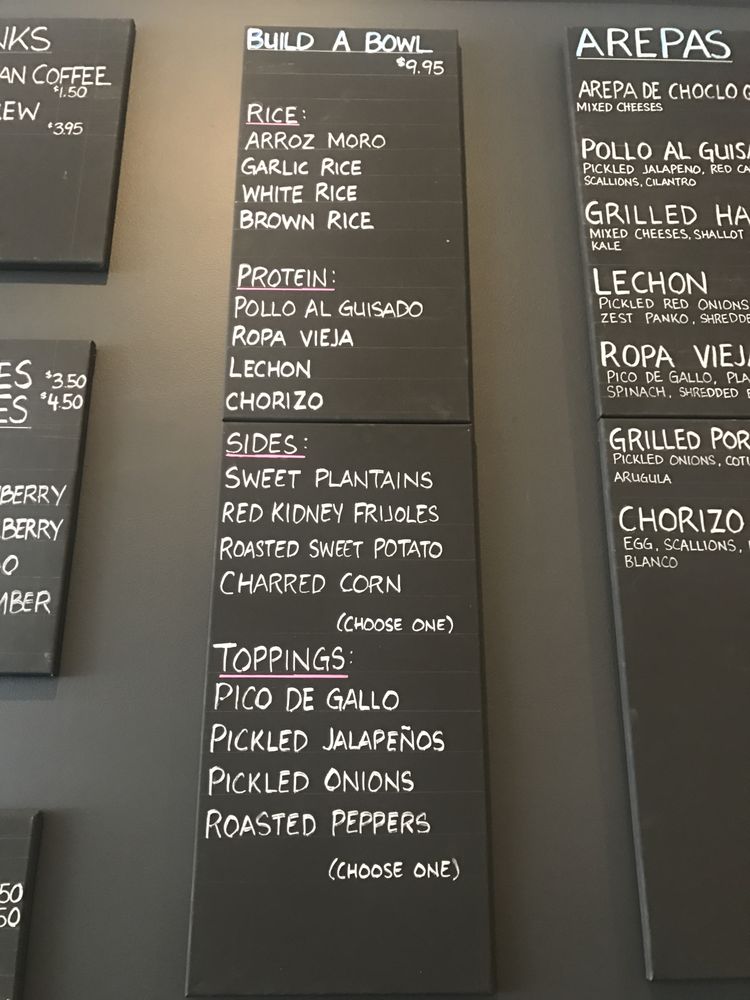 COFFEE
$1.50
$3.95
$3.50
$4.50
BUILD A BOWL
$9.95
RICE:
ARROZ MORO
GARLIC RICE
WHITE RICE
BROWN RICE
PROTEIN:
POLLO AL GUISADO
ROPA VIEJA
LECHON
CHORIZO
SIDES:
SWEET PLANTAINS
RED KIDNEY FRIJOLES
ROASTED SWEET POTATO
CHARRED CORN
(CHOOSE ONE)
TOPPINGS:
PICO DE GALLO
PICKLED JALAPEÑOS
PICKLED ONIONS
ROASTED PEPPERS
(CHOOSE ONE)
AREPAS
AREPA DE CHOCLO
MIXED CHEESES
POLLO AL
PICKLED JALAPENO, RED
SCALLIONS, CILANTRO
GRILLED
MIXED CHEESES, SHALLOT
KALE
LECHON
PICKLED RED ONIONS
ZEST PANKO,
ROPA
PICO DE GALLO,
SPINACH, SHREDDED
GRILLED
PICKLED ONIONS,
ARUGULA
CHORIZO
EGG, SCALLIONS,
BLANCO